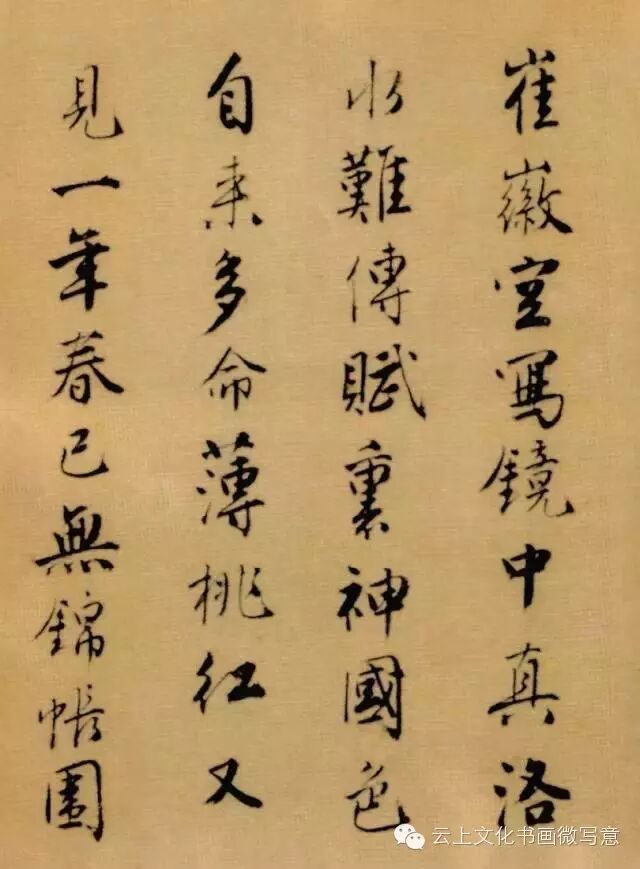 崔徽空寫鏡中真洛
水難傳賦裏神國色
自来多命薄桃紅又
見一年春已無錦帳圍
云上文化书画微写意